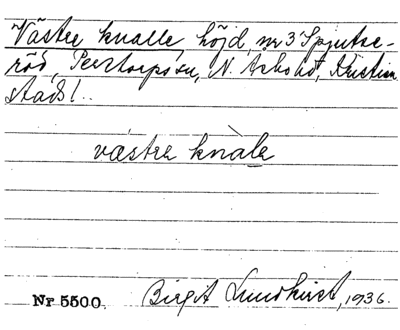 Västre knalle, höjd, nr 3 Spjutse-
röd, Perstorps sn, N. Åsbo hd, Kristian
stads l.
västre knàle
Nr 5500. Birgit Lundkvist, 1936.